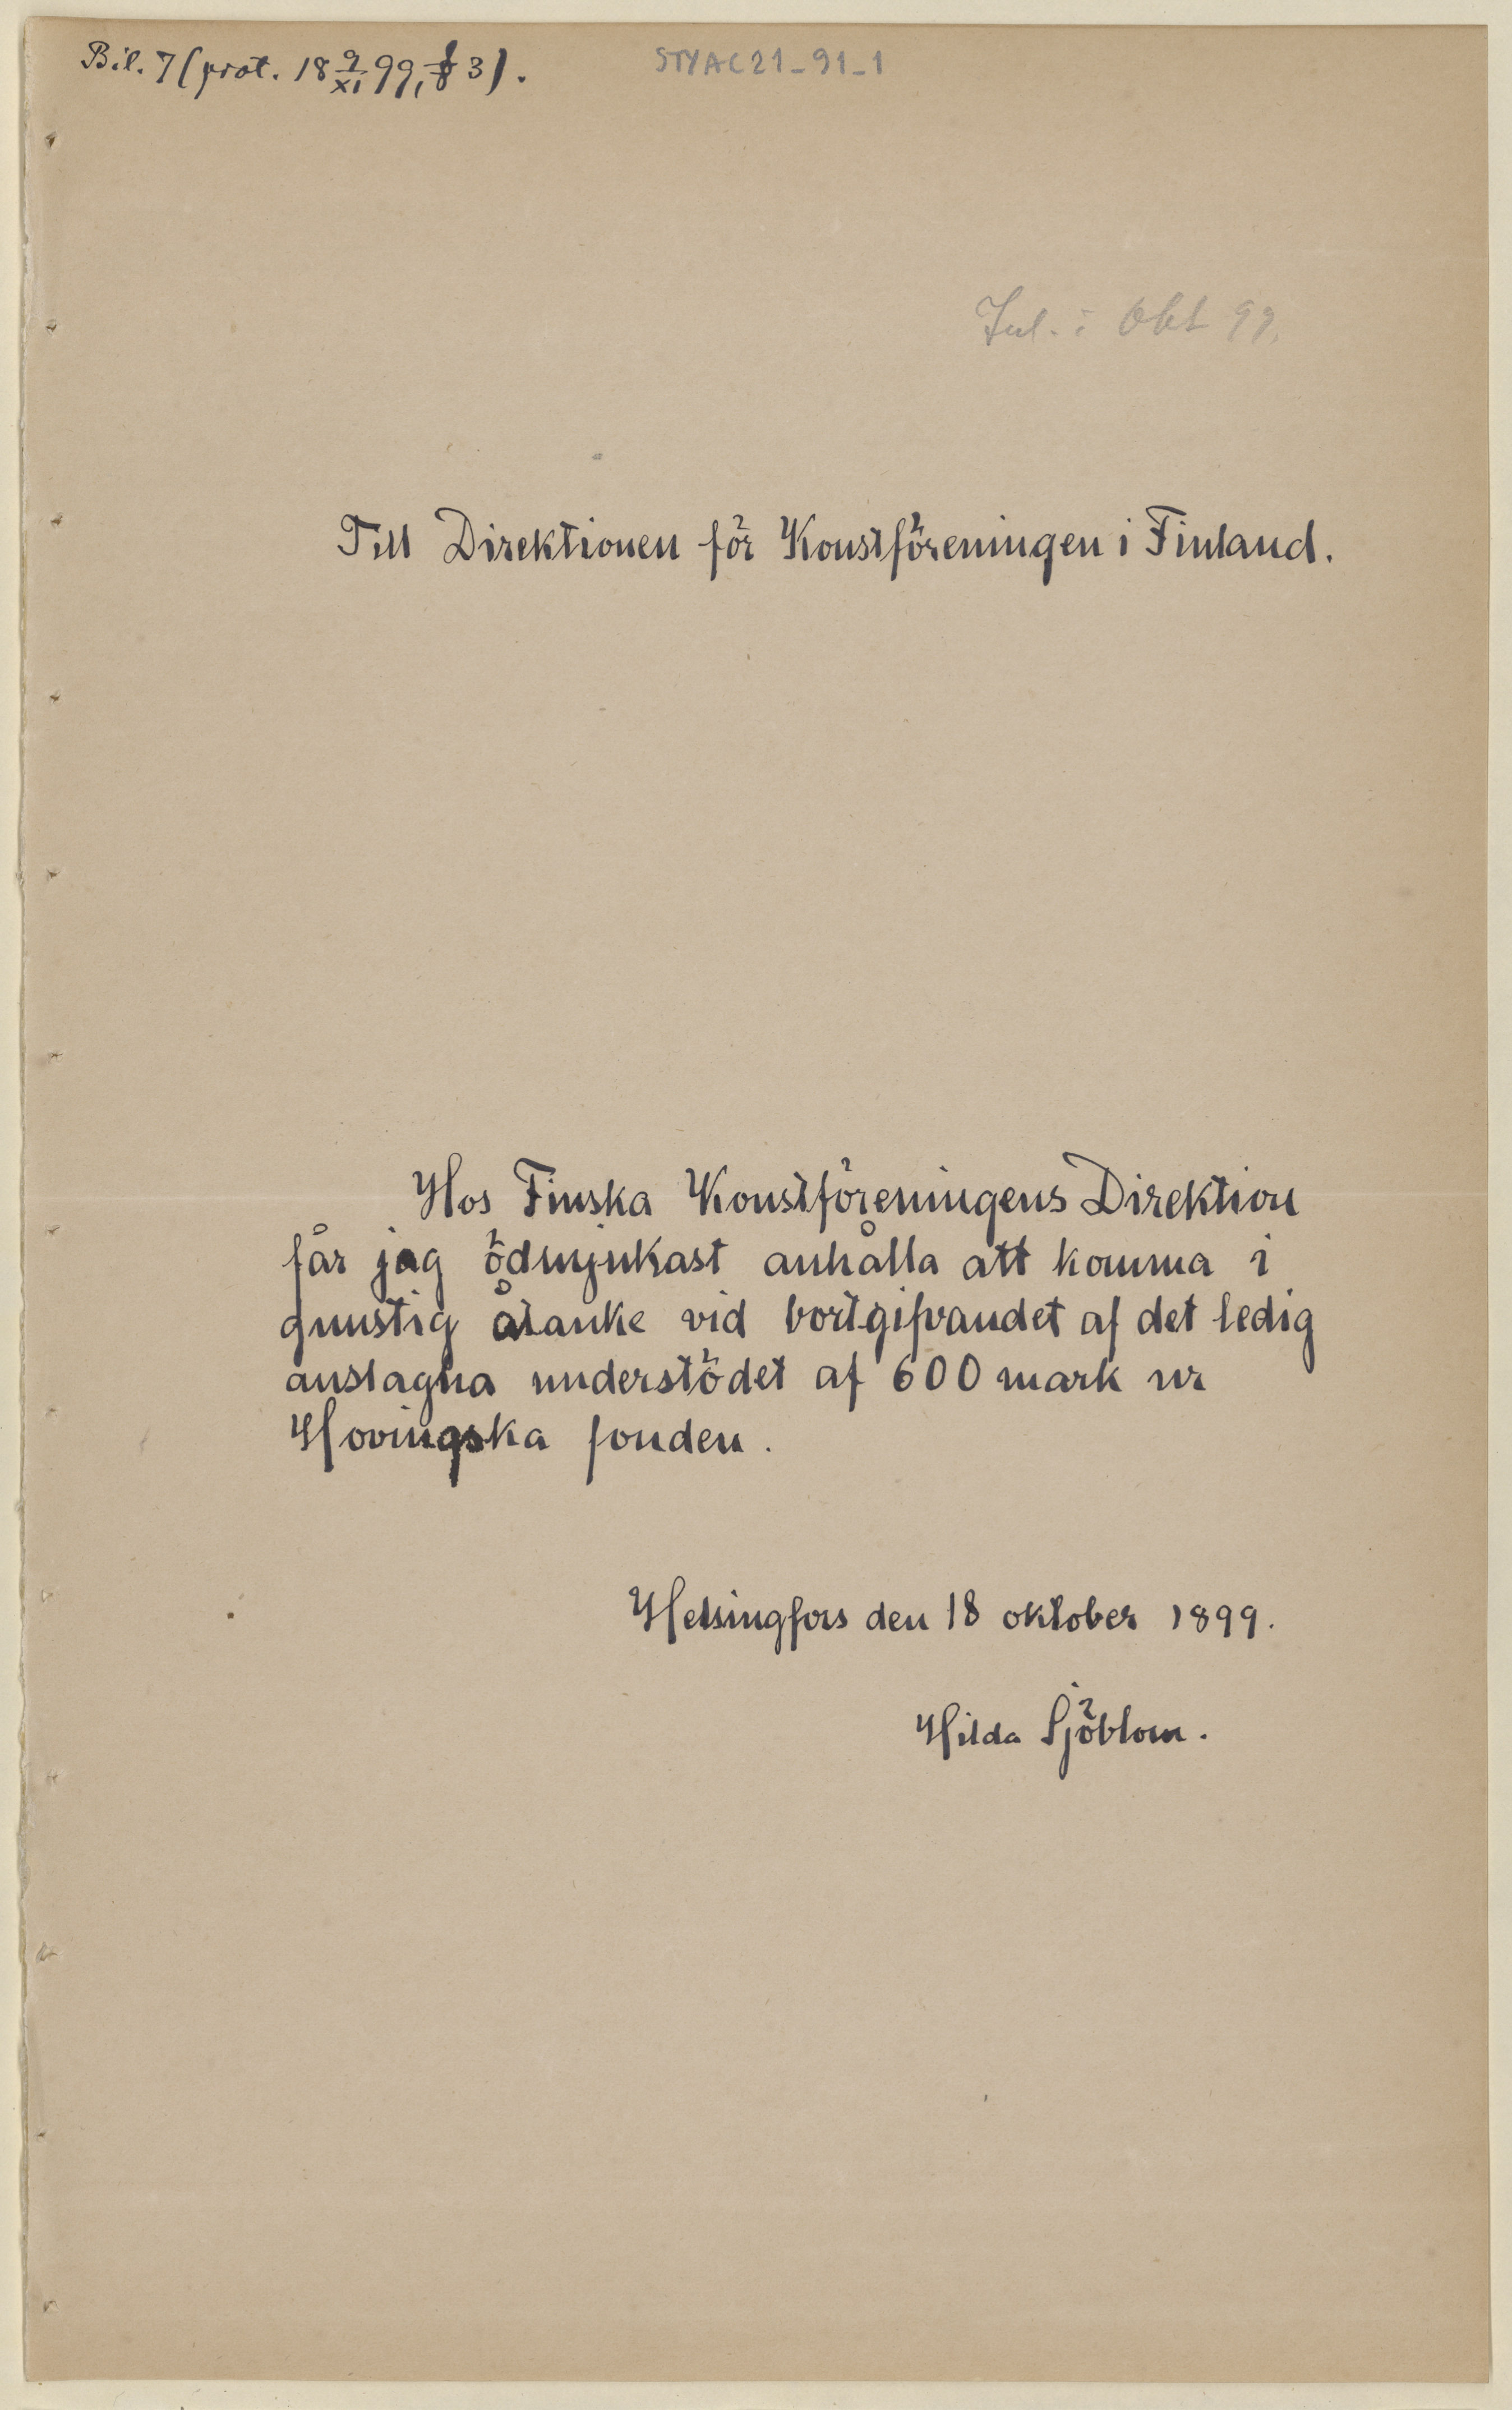 Bil. 7 (prot. 18 9/XI 99, § 3).
STYAC21_91_1
Inl. i Okt 99.
Till Direktionen för Konstföreningen i Finland.
Hos Finska Konstföreningens Direktion
får jag ödmjukast anhålla att komma i
gunstig åtanke vid bortgifvandet af det ledig
anslagna understödet af 600 mark ur
Hovingska fonden.
Helsingfors den 18 oktober 1899.
Hilda Sjöblom.